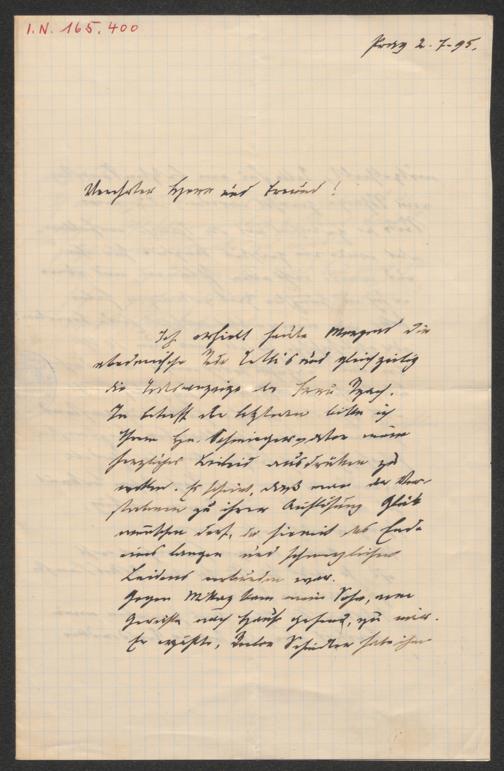 I.N. 165.400
Prag 2.7.95.
Verehrter Herr und Freund!
Ich erhielt heute Morgens die
akademische Rede und gleichzeitig
die Todesanzeige der Frau
In betreff der letzteren bitte ich
Ihrem Hn. Schwiegervater mein
herzliches Beileid ausdrücken zu
wollen. Es scheint, dass man der Ver-
storbenen zu ihrer Auflösung Glück
wünschen darf, da hiemit das Ende
eines langen und schmerzlichen
Leidens verbunden war.
Gegen Mittag kam mein Sohn, vom
Gerichte nach Hause gehend, zu mir.
Er erzählte, Doktor habe ihm